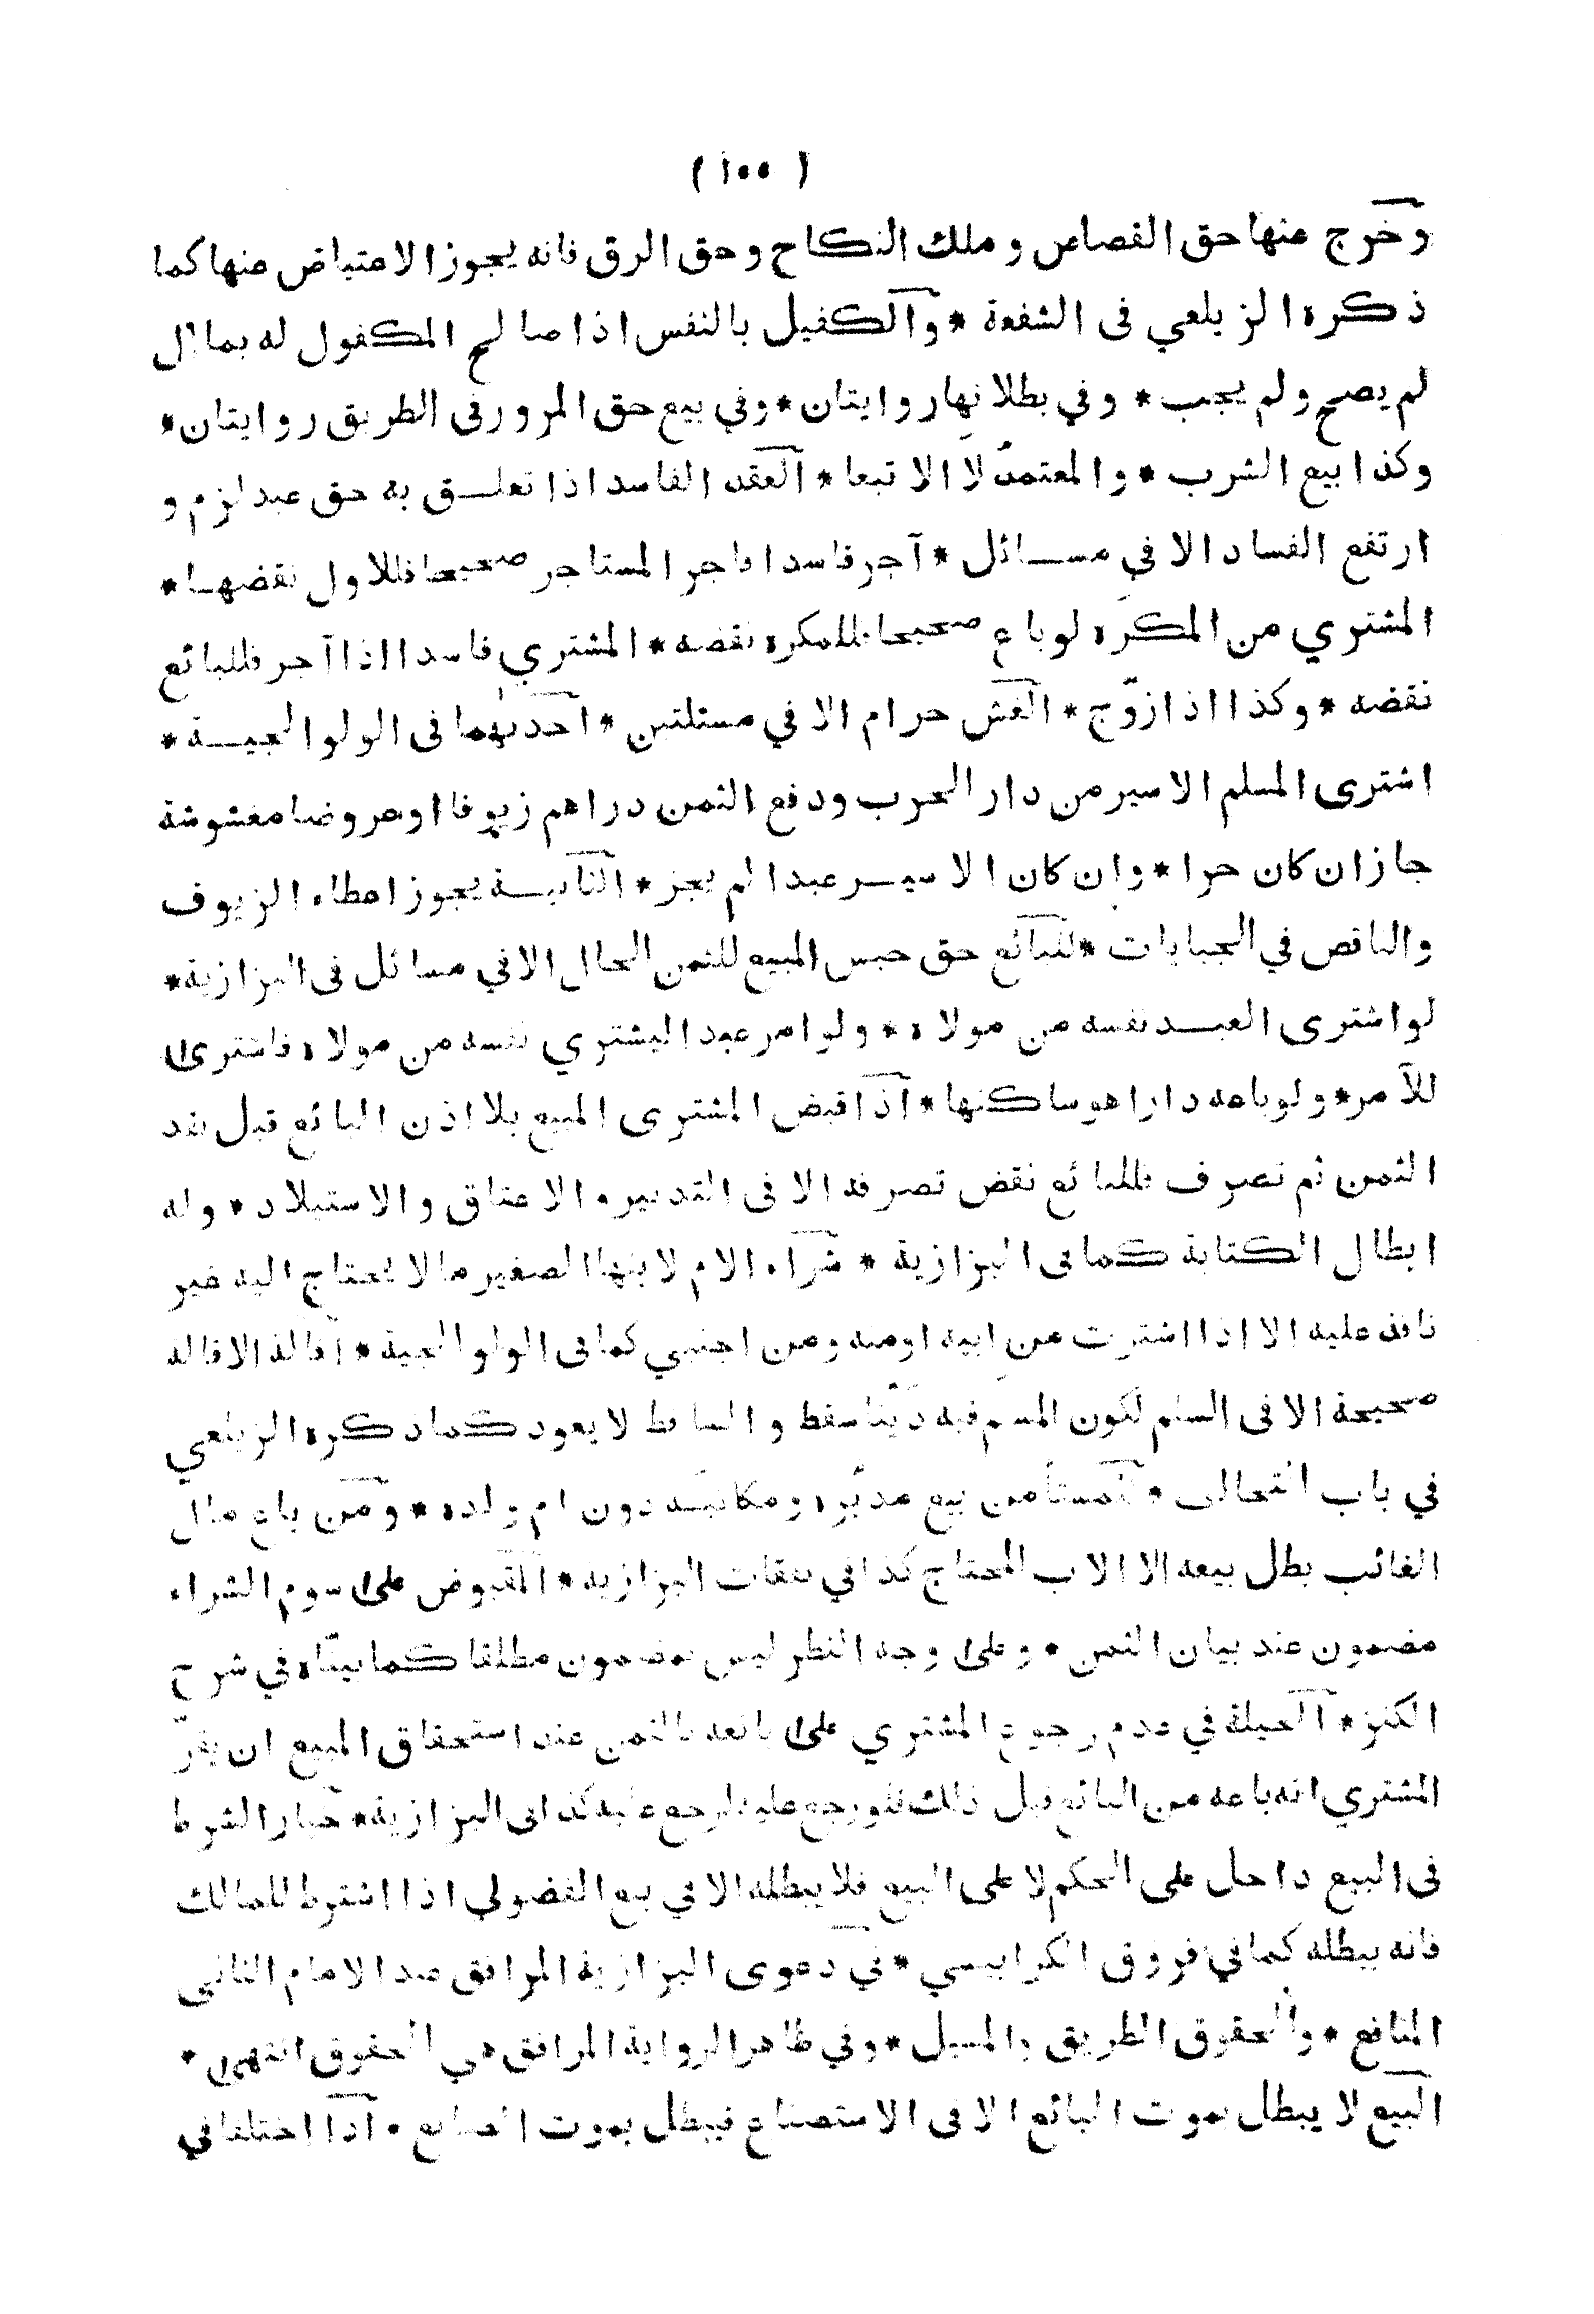 ( ١٠٠ )
وخرج منها حق القصاص و ملك النكاح و حق الرق فانه يجوز الاعتياض منها كما
ذكره الزيلعي فى الشفعة * والكفيل بالنفس اذا صالح المكفول له بمال
لم يصح و لم يجب * و في بطلانها روايتان * وفي بيع حق المرور فى الطريق روايتان *
وكذا بيع الشرب * و المعتمد لا الا تبعا * العقد الفاسد اذا تعلق به حق عبد لزم و
ارتفع الفساد الا في مسائل * آجر فاسدا فاجر المستاجر صحيحا فللاول نقضها *
المشتري من المكره لو باع صحيحا فللمكره نقضه * المشتري فاسدا اذا آجر فللبائع
نقضه * وكذا اذا زوّج * الغش حرام الا في مسئلتين * احدٮهما فى الولوالجية *
اشترى المسلم الاسير من دار الحرب ودفع الثمن دراهم زيوفا او عروضا مغشوشة
جاز ان كان حرا * وان كان الاسير عبدا لم يجز * الثانية يجوز اعطاء الزيوف
والناقص في الجبايات * للبائع حق حبس المبيع للثمن الحال الا في مسائل فى البزازية *
لو اشترى العبد نفسه من مولاه * ولو امر عبدا ليشتري نفسه من مولاه فاشترى
للآمر * ولو باعه دارا هو ساكنها * اذا قبض المشترى المبيع بلا اذن البائع قبل نقد
الثمن ثم تصرف فللبائع نقض تصرفه الا فى التدبير و الاعتاق و الاستيلاد * وله
ابطال الكتابة كما فى البزازية * شراء الام لابنها الصغير ما لا يحتاج اليه غير
نافذ عليه الا اذا اشترت من ابيه او منه ومن اجنبي كما فى الولوالجية * اقالة الاقالة
صحيحة الا فى السلم لكون المسلم فيه دينا سقط و الساقط لا يعود كما ذكره الزيلعي
في باب التحالف * للمستأمن بيع مدبّره و مكاتبه دون ام ولده * ومن باع مال
الغائب بطل بيعه الا الاب المحتاج كذا في نفقات البزازية * المقبوض على سوم الشراء
مضمون عند بيان الثمن * و على وجه النظر ليس بمضمون مطلقا كما بيناه في شرح
الكنز * الحيلة في عدم رجوع المشتري على بائعه بالثمن عند استحقاق المبيع ان يقرّ
المشتري انه باعه من البائع قبل ذلك فلو رجع عليه لرجع عليه كذا فى البزازية * خيار الشرط
فى البيع داخل على الحكم لا على البيع فلا يبطله الا في بيع الفضولي اذا اشترط للمالك
فانه يبطله كما في فروق الكرابيسي * في دعوى البزازية المرافق عند الامام الثاني
المنافع * و الحقوق الطريق والمسيل * وفي ظاهر الرواية المرافق هي الحقوق انتهى *
البيع لا يبطل بموت البائع الا فى الاستصناع فيبطل بموت الصانع * اذا اختلفا في